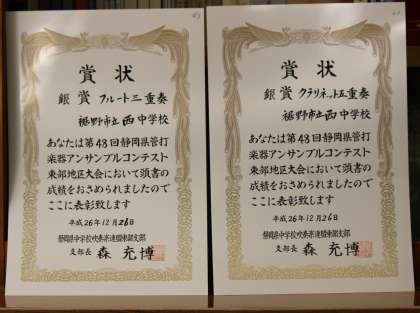 賞状
銀賞 フルート三重奏
裾野市立西中学校
あなたは第48回静岡県管打
楽器アンサンブルコンテスト
東部地区大会において頭書の
成績をおさめられましたので
ここに表彰致します
平成26年12月26日
静岡県中学校吹奏楽連盟東部支部
支部長 森 充博
賞状
銀賞 クラリネット五重奏
裾野市立西中学校
あなたは第48回静岡県管打
楽器アンサンブルコンテスト
東部地区大会において頭書の
成績をおさめられましたので
ここに表彰致します
平成26年12月26日
静岡県中学校吹奏楽連盟東部支部
支部長 森 充博